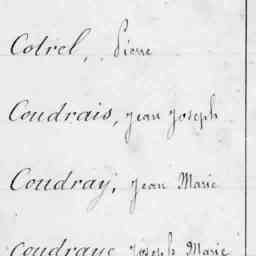 Cotrel, Pierre
Coudrais, Jean Joseph
Coudray, Jean Marie
Coudraye Joseph Marie